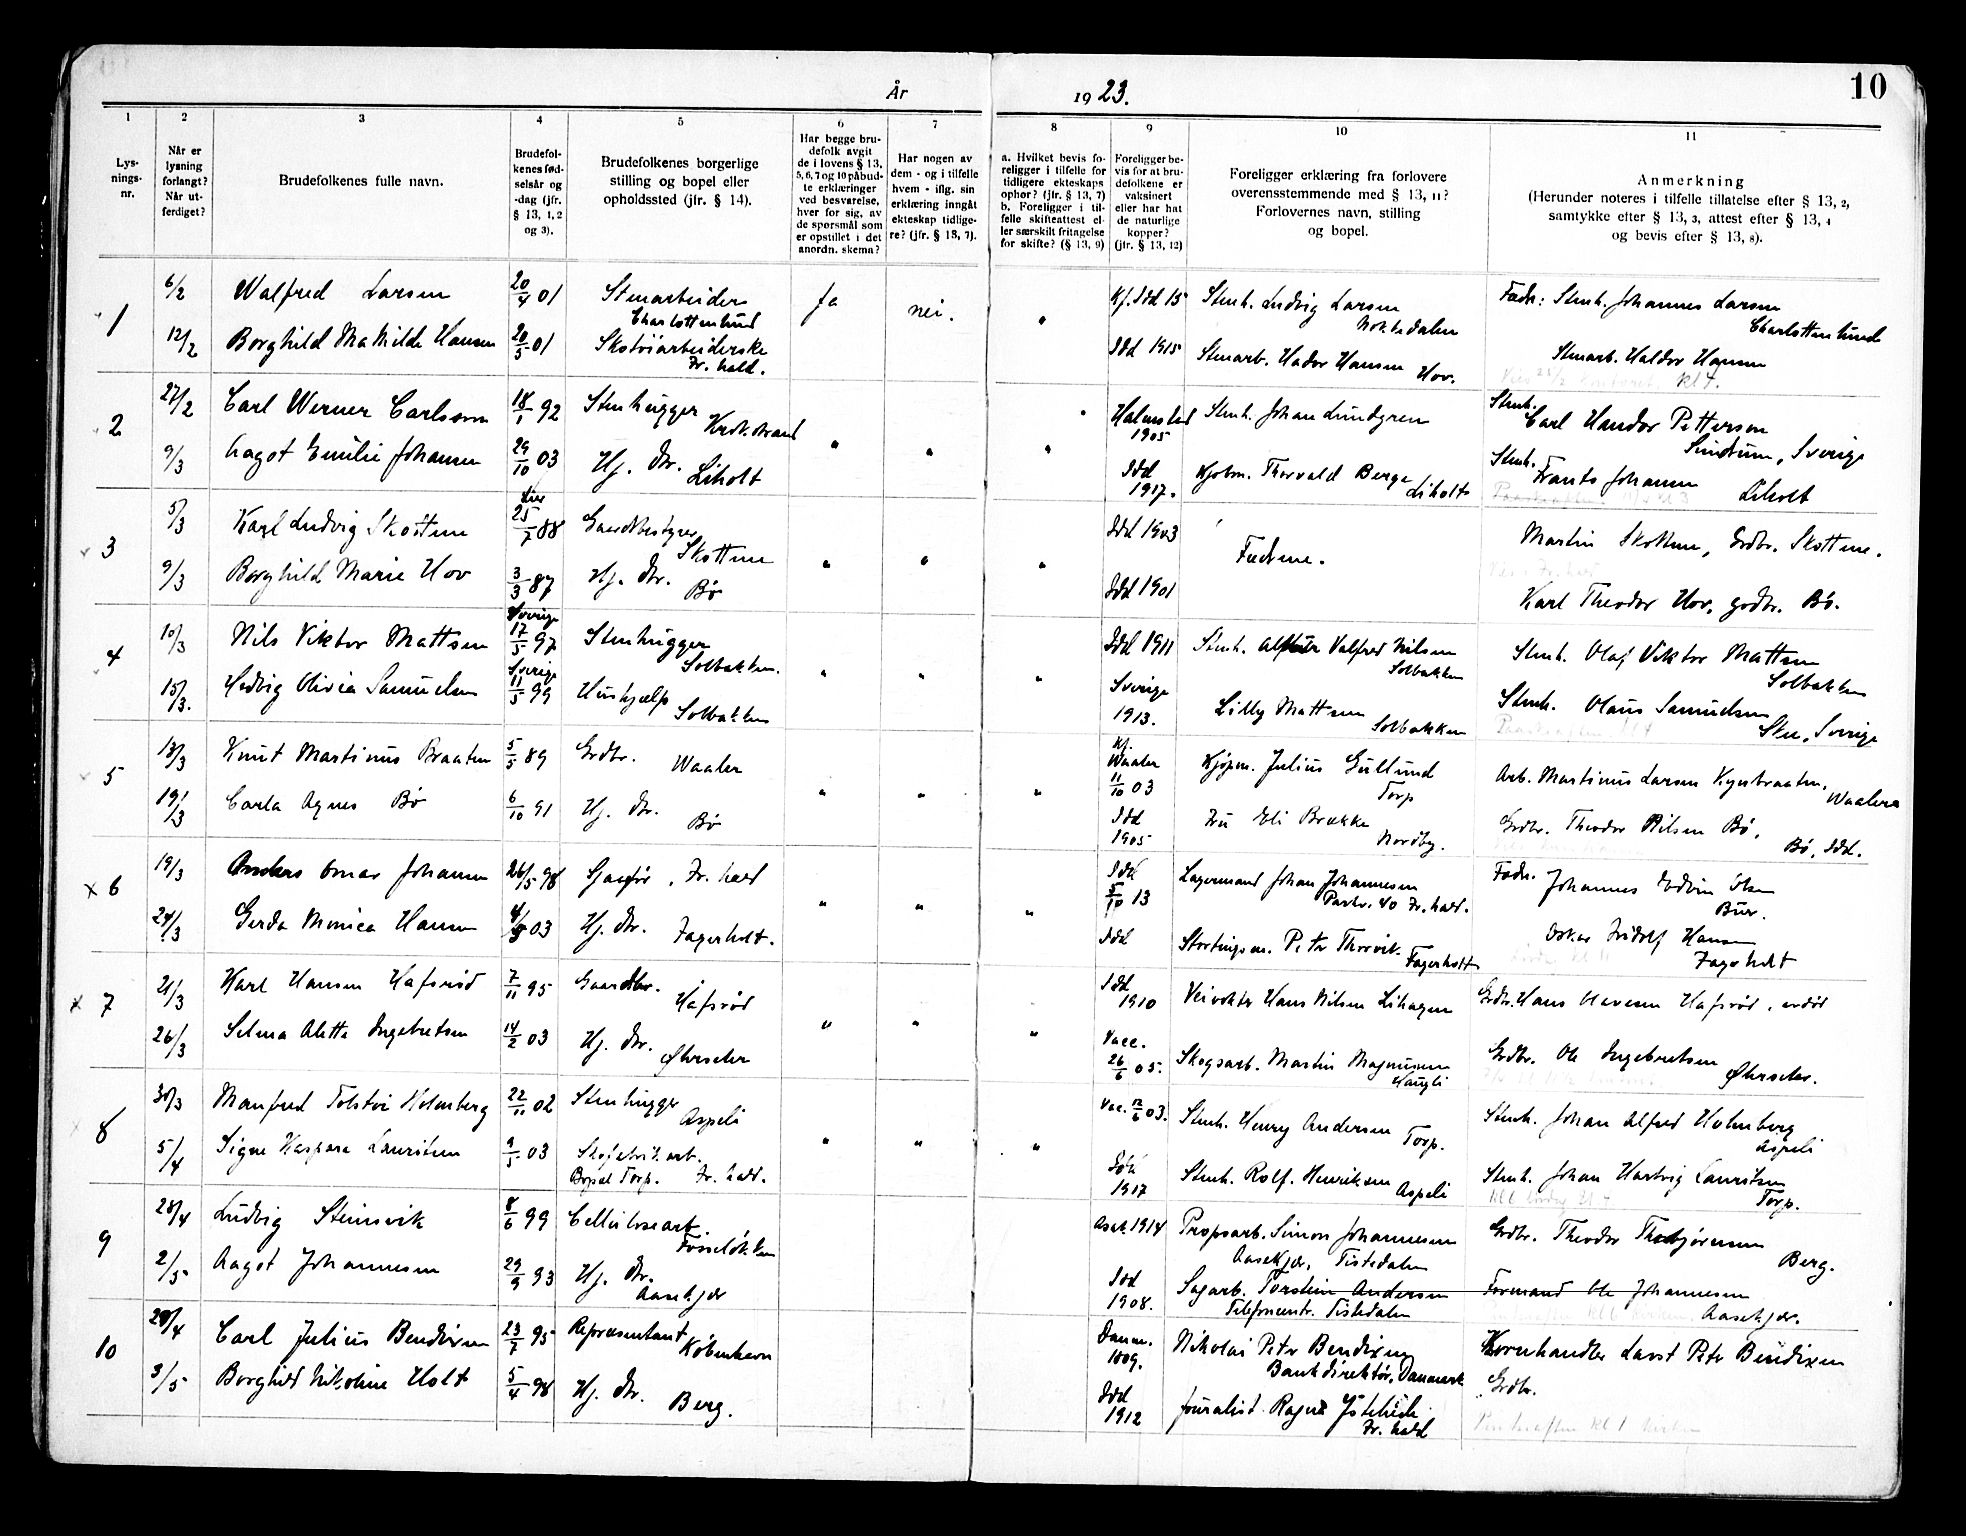 År
1923.
10
1
2
3
4
5
6
7
8
9
10
11
Lys-
nings-
nr.
Når er
lysning
forlangt?
Når ut-
ferdiget?
Brudefolkenes fulle navn.
Brudefol-
kenes fød-
selsår og
-dag (jfr.
§ 13, 1, 2
og 3).
Brudefolkenes borgerlige
stilling og bopel eller
opholdssted (jfr. § 14).
Har begge bru-
defolk avgit
de i lovens § 13,
5, 6, 7 og 10 påbud-
te erklæringer
ved besvarelse,
hver for sig, av
de spørsmål som
er opstillet i det
anordn. skema?
Har nogen av
dem - og i tilfelle
hvem - iflg. sin
erklæring inngåt
ekteskap tidlige-
re? (jfr. § 13, 7).
a. Hvilket bevis fo-
religger i tilfelle for
tidligere ekteskaps
ophør? (jfr. § 13, 7)
b. Foreligger i til-
felle skifteattest el-
ler særskilt fritagelse
for skifte? (§ 13, 9)
Foreligger be-
vis for at bru-
defolkene er
vaksinert
eller har hat
de naturlige
kopper?
(jfr. § 13, 12)
Foreligger erklæring fra forlovere
overensstemmende med § 13, 11?
Forlovernes navn, stilling
og bopel.
Anmerkning
(Herunder noteres i tilfelle tillatelse efter § 13, 2,
samtykke efter § 13, 3, attest efter § 13, 4
og bevis efter § 13, 8).
1
6/2 Walfred Larsen 20/4 01 Stenarbeider
Charlottenlund
ja nei. " Kf. Idd 15 Stenh. Ludvig Larsen
Nokkedalen
Fadr: Stenh. Johannes Larsen
Charlottenlund
12/2 Borghild Mathilde Hansen 20/5 01 Skotøiarbeiderske
Fr.hald.
Idd 1915 Stenarb. Hador Hansen
Hov.
Stenarb. Haldor Hansen
kl 4.
2
27/2 Carl Werner Carlsson 18/1 92 Stenhugger
Krokstrand
" " " Halmstad
1905
Stenh. Johan Lundgren
Stenh.
Carl Handor Petterson
Sverige
9/3 Aagot Emilie Johansen 29/10 03 Hj. dtr.
Liholt
Idd
1917.
Kjøbm. Thorvald Berge
Liholt
Stenh.
Frants Johansen
Liholt
3
5/3 Karl Ludvig Skottene Lier
25/7 88 Gaardbestyrer
Skottene
" " " Idd 1903
Fedrene.
Martin Skottene, Grdbr. Skottene.
9/3 Borghild Marie Hov 3/3 87 Hj. dtr.
Bø
Idd 1901
Karl Theodor Hov, grdbr. Bø.
4
10/3 Nils Viktor Mattsen Sverige
17/5 97 Stenhugger
Solbakken.
" " " Idd 1911 Stenh. Valfred Nilsen
Solbakken
Stenh. Olaf Viktor Mattsen
Solbakken
15/3. Hedvig Olivia Samuelsen Sverige
11/5 99 Hushjælp
Solbakken
Sverige
1913.
Lilly Mattsen
Solbakken
Stenh. Olaus Samuelsen
Skee, Sverige
5
13/3 Knut Martinus Braaten 5/5 89 Grdbr.
Waaler
" " " Kf.
Waaler
11/10 03
Kjøpm. Julius Gullund
Torp
Arb. Martinus Larsen
Waaler
19/3 Carla Agnes Bø 6/10 91 Hj. dtr.
Bø
Idd
1905
Fru Eli Brække
Nordby.
Grdbr. Theodor Nilsen Bø,
Bø, Idd.
6
19/3 Anders Omar Johansen 26/5 98 Fr.hald
" " " Idd
5/10 13
Lagermand Johan Johannesen
40 Fr.hald.
Fadr. Johannes Edvin Olsen
Bur.
24/3 Gerda Monica Hansen 4/5 03 Hj. dtr.
Fagerholt.
Idd
Stortingsm. Petr Thorvik
Fagerholt
Oskar Fridolf Hansen
Fagerholt
7
21/3 Karl Hansen Hafsrød 7/11 95 Gaardbr.
Hafsrød
" " " Idd
1910
Veivokter Hans Nilsen Lihagen
Grdbr. Hans Hansen Hafsrød
26/3 Selma Aletta Ingebretsen 14/2 03 Hj. dtr.
Øhrseter
Vacc.
26/6 05.
Skogsarb. Martin Magnussen
Haugli
Grdbr. Ole Ingebretsen
Øhrseter.
8
30/3 Manfred Tolstoi Holmberg 22/11 02 Stenhugger
Aspeli
" " " Vac. 12/6 03.
Stenh. Henry Andersen
Torp.
Stenh. Johan Alfred Holmberg
Aspeli
5/4 Signe Kaspara Lauritsen 9/5 03 Skofabrikarb.
Bopæl Torp. Fr.hald.
Idd
1917
Stenh. Rolf. Henriksen Aspeli
Stenh. Johan Hartvig Lauritsen
Torp.
9
28/4 Ludvig Stensvik 8/6 99 Cellulosearb.
Fosseløkken
1914 Propsarb. Simon Johannesen
Aasekjær, Tistedalen
Grdbr. Theodor Thorbjørnsen
Berg.
2/5 Aagot Johannesen 29/9 93 Hj. dtr.
Aasekjær
Idd
1908.
Sagarb. Torstein Andersen
Telefoncentr. Tistedalen
Formand Ole Johannesen
Aasekjær.
10
28/4 Carl Julius Bendixen 23/7 95 Repræsentant
København
Danm.
1909.
Nikolai Petr Bendixen
Bankdirektør, Danmark
Kornhandler Petr Bendixen
3/5 Borghild Nikoline Holt 5/4 98 Hj. dtr.
Berg.
Idd
1912
Journalist Fr.hald
Grdbr.